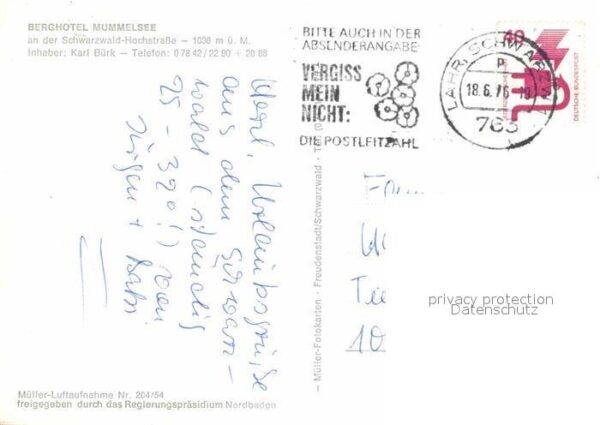 BERGHOTEL MUMMELSEE
an der Schwarzwald-Hochstraße – 1036 m ü. M.
Inhaber: Karl Bürk – Telefon: 0 78 42 / 22 90 + 20 88
BITTE AUCH IN DER
ABSENDERANGABE:
VERGISS
MEIN
NICHT:
DIE POSTLEITZAHL
LAHR, SCHWARZW
P
18.6.76-19
763
40
DEUTSCHE BUNDESPOST
Herzl. Urlaubsgrüße
aus dem Schwarz-
wald (ständig
25 - 32°!) von
Jürgen +
– Müller-Fotokarten · Freudenstadt/Schwarzwald
10
privacy protection
Datenschutz
Müller-Luftaufnahme Nr. 204/54
freigegeben durch das Regierungspräsidium Nordbaden